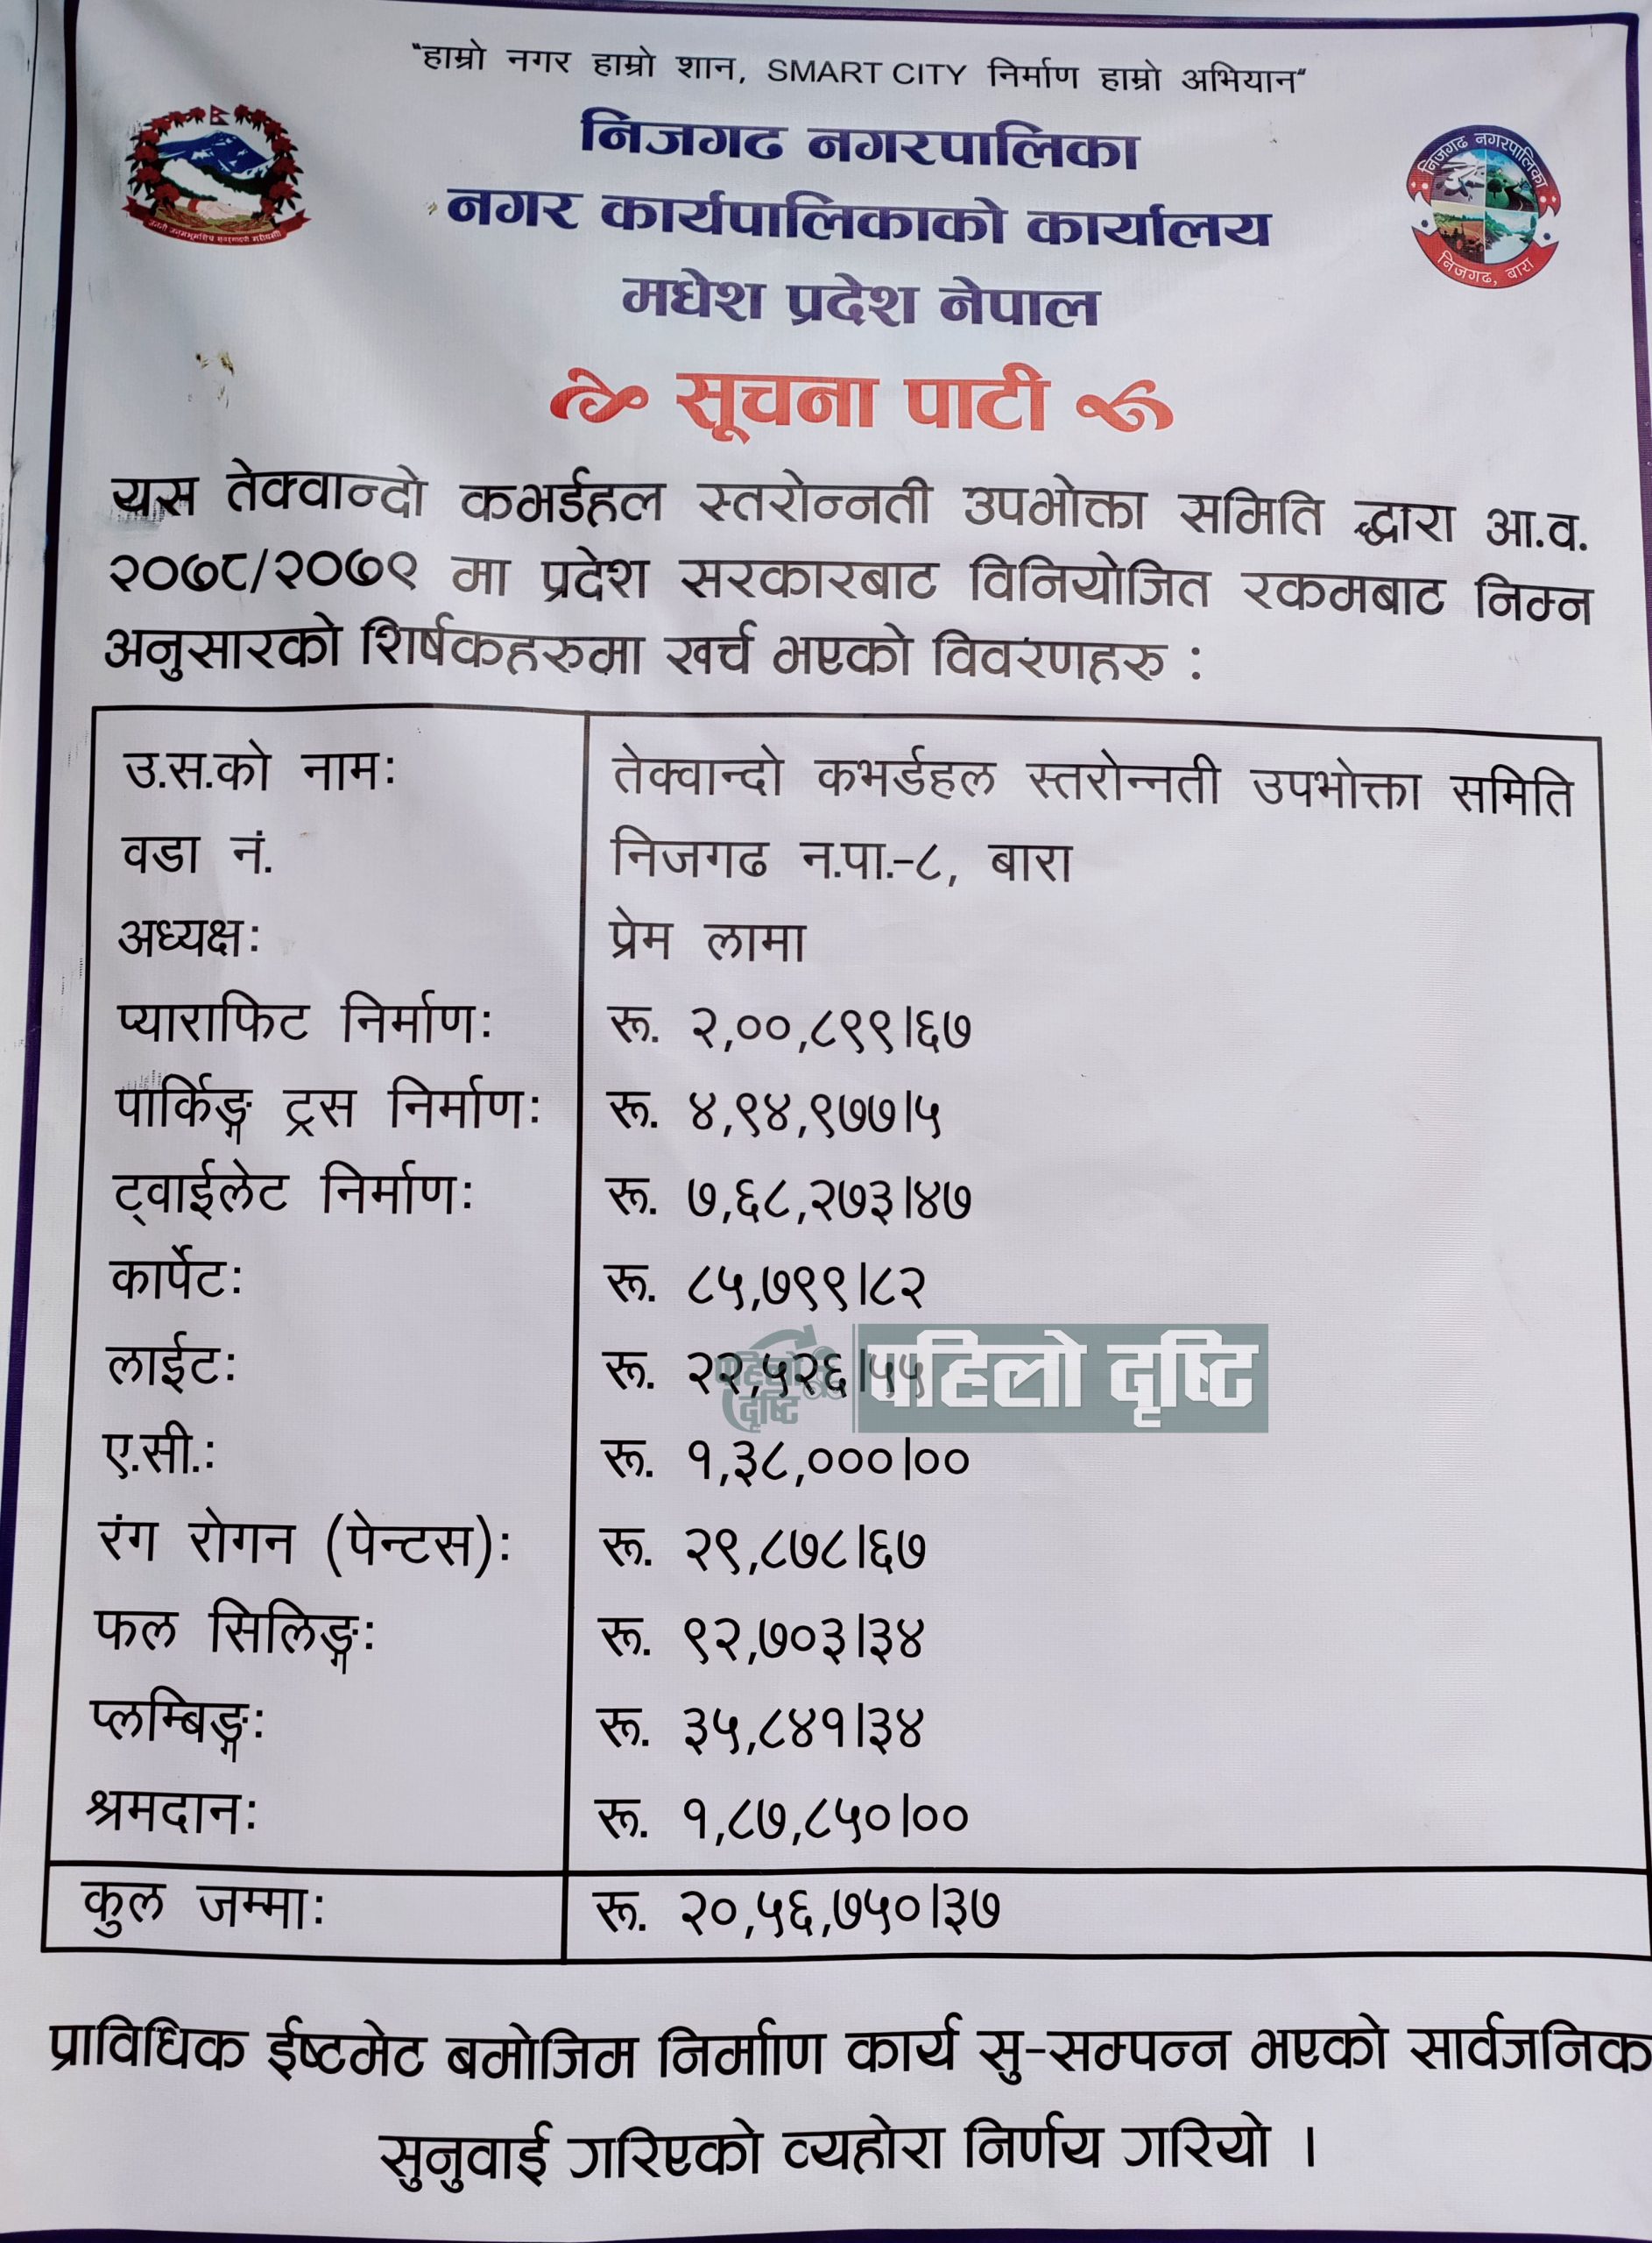 "हाम्रो नगर हाम्रो शान, SMART CITY निर्माण हाम्रो अभियान"
निजगढ नगरपालिका
नगर कार्यपालिकाको कार्यालय
मधेश प्रदेश नेपाल
निजगढ नगरपालिका
निजगढ, बारा
सूचना पाटी
यस तेक्वान्दो कभर्डहल स्तरोन्नती उपभोक्ता समिति द्धारा आ.व.
२०७८/२०७९ मा प्रदेश सरकारबाट विनियोजित रकमबाट निम्न
अनुसारको शिर्षकहरुमा खर्च भएको विवरणहरु :
उ.स.को नाम: तेक्वान्दो कभर्डहल स्तरोन्नती उपभोक्ता समिति
वडा नं. निजगढ न.पा.-८, बारा
अध्यक्ष: प्रेम लामा
प्याराफिट निर्माण: रू. २,००,८९९।६७
पार्किङ्ग ट्रस निर्माण: रू. ४,९४,९७७।५
ट्वाईलेट निर्माण: रू. ७,६८,२७३।४७
कार्पेट: रू. ८५,७९९।८२
लाईट: रू. २२,५२६।५५
पहिलो दृष्टि
पहिलो
दृष्टि
ए.सी.: रू. १,३८,०००।००
रंग रोगन (पेन्टस): रू. २९,८७८।६७
फल सिलिङ्ग: रू. ९२,७०३।३४
प्लम्बिङ्ग: रू. ३५,८४१।३४
श्रमदान: रू. १,८७,८५०।००
कुल जम्मा: रू. २०,५६,७५०।३७
प्राविधिक ईष्टमेट बमोजिम निर्माण कार्य सु-सम्पन्न भएको सार्वजनिक
सुनुवाई गरिएको व्यहोरा निर्णय गरियो ।